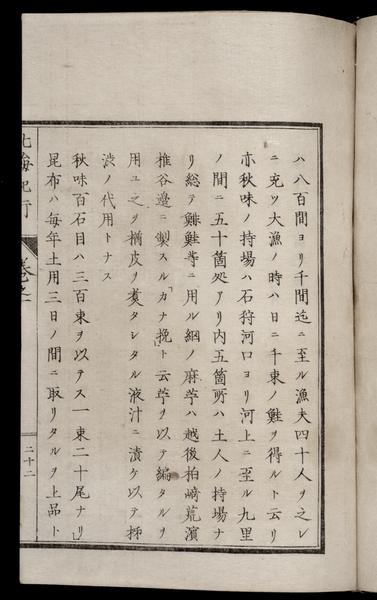 ハ八百間ヨリ千間迄ニ至ル漁夫四十人ヲ之レ
ニ充ツ大漁ノ時ハ日ニ千束ノ鮭ヲ得ルト云リ
亦秋味ノ持場ハ石狩河口ヨリ河上ニ至ル九里
ノ間ニ五十箇処アリ内五箇所ハ土人ノ持場ナ
リ総テ鯡鮭等ニ用ル網ノ麻苧ハ越後柏崎荒濱
椎谷邉ニ製スル「カナ挽」ト云苧ヲ以テ編タルヲ
用ユ之ヲ楢皮ヲ煑タシタル液汁ニ漬ケ以テ柹
渋ノ代用トナス
秋味百石目ハ三百束ヲ以テス一束二十尾ナリ」
昆布ハ毎年土用三日ノ間ニ取リタルヲ上品ト
北海紀行
巻之一
二十二